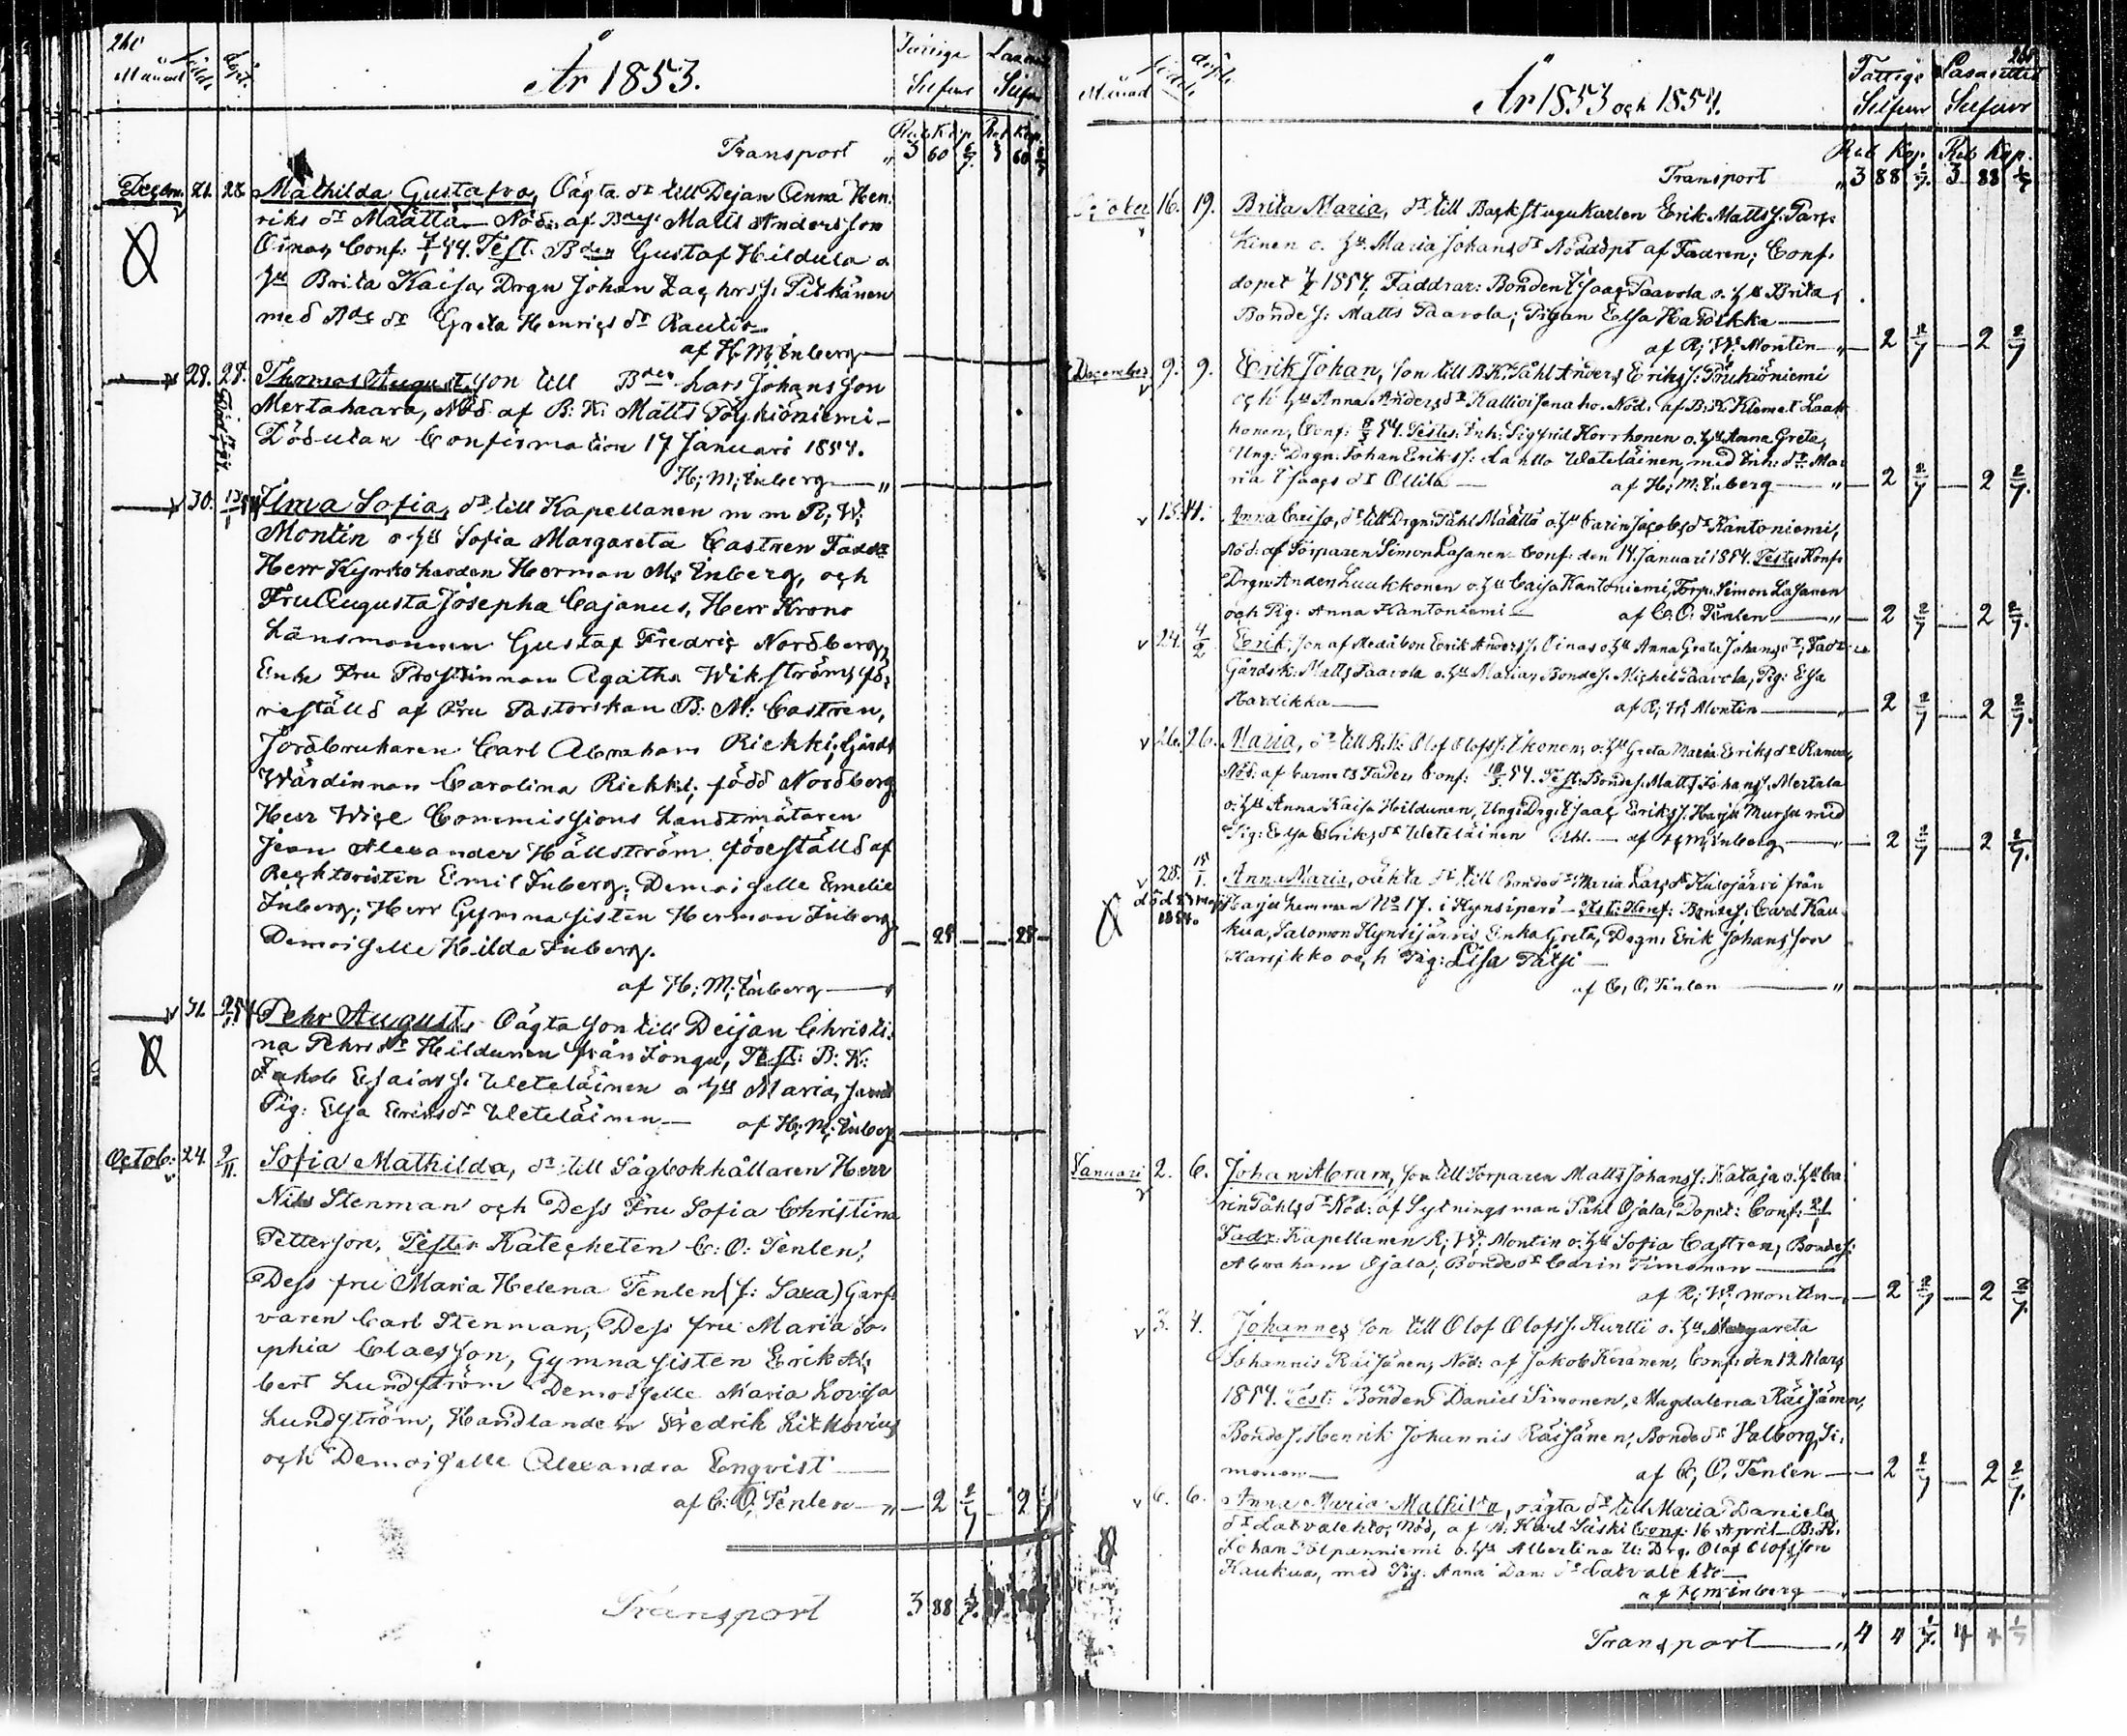 Månad
född.
döpt.
År 1853.
Fattige
Silfver
Silfver
Rub Kop Rub Kop
Transport „ 3 60 3 60
Decem. 21. 28. Mathilda Gustafva, Oägta dr till Dejan Anna Hen-
riks dr Määttä. Nöd. af Matts Andersson
Oinas, Conf. Test. Gustaf Hildula o
hu Brita Kaisa, Drgn Johan Pitkänen
med Greta Henrics dr Rautio
af H. M. Inberg
28. 28. Thomas August, son till Lars Johansson
Mertahaara, Nöd. af B: K: Matts Pöykiöniemi-
Död utan Confirmation 17 Januari 1854.
H; M; Inberg „
30. Ilma Sofia, dr till Kapellanen m m R; W;
Montin o. hu Sofia Margareta Castren
Herr Kyrkoherden Herman M; Inberg, och
Fru Augusta Josepha Cajanus, Herr Krono
Länsmannen Gustaf Fredric Nordberg,
Enke Fru Prostinnan Agatha Wikström, fö-
reställd af Fru Pastorskan B: M: Castren,
Jordbrukaren Carl Abraham Riekki; Gårds
Wärdinnan Carolina Riekki, född Nordberg
Herr Wice Commissions Landtmätaren
Jean Alexander Hällström föreställd af
Emil Inberg; Demoiselle Emelie
Inberg; Herr Gymnasisten Herman Inberg
Demoiselle Hilda Inberg. — 28 — — 28 —
af H; M; Inberg
31. Pehr August, Oägta son till Deijan Christi-
na Pehrs dr Hildunen från Jongu, Test: B: K:
Jakob Esaias s. Weteläinen o hu Maria, samt
Pig: Elsa Eriks dr Weteläinen — af H; M; Inberg
Octob: 24. 2/11. Sofia Mathilda, dr till Sågbokhållaren Herr
Nils Stenman och Dess Fru Sofia Christina
Petterson. Testes Katecheten C: O: Tenlen;
Dess fru Maria Helena Tenlen (f: Sara) Garf-
varen Carl Stenman, Dess fru Maria So-
phia Claesson, Gymnasisten Erik Al-
bert Lundström Demoiselle Maria Lovisa
Lundström, Handlanden Fredrik
och Demoiselle Alexandra Enqvist
af C: O; Tenlen „ — 2 2/7 — 2
Transport 3 88
Månad
född.
döpt.
År 1853 och 1854.
Fattige Lasarettet
Silfver Silfver
Rub Kop. Rub Kop.
Transport „ 3 88 3 88
October 16. 19. Brita Maria, dr till Backstugukarlen Erik Matts s.
o. hu Maria Johans dr Nöddöpt af Fadren; Conf.
dopet 1854, Faddrar: Bonden Isaac Paavola o. hu Brita,
Bonde s: Matts Paavola; Pigan Elsa Hardikka
af R; W; Montin „ — 2 2/7 — 2 2/7
December 9. 9. Erik Johan, son till B.K. Påhl Anders Eriks s:
och hu Anna Anders dr Nöd. af B: K Klemet Laak-
konen, Conf: 54. Testes. Inh: Sigfrid Korrhonen o. hu Anna Greta,
Ung: Drgn: Johan Eriks s: Weteläinen, med Inh: dr: Ma-
ria Isaacs dr Ollila — af H; M; Inberg „ — 2 2/7 — 2 2/7.
13. 14. Anna Caisa, dr till Drgn: Påhl Määttä o. hu Carin Jacobs dr Kantoniemi,
Nöd: af Torparen Simon Lasanen. Conf: den 14. Januari 1854. Testes Konf:
Drgn: Luukkonen o. hu Caisa Kantoniemi, Torp. Simon Lasanen
och Pig: Anna Kantoniemi — af C: O: Tenlen „ — 2 2/7 — 2 2/7.
24. Erik, son af Erik Anders s. Oinas o. hu Anna Greta Johans dr;
Gårdsk: Matts Paavola o. hu Maria, Bonde s. Michel Paavola, Pig: Elsa
Hardikka — af R; W; Montin — 2 2/7 — 2 2/7.
26. 26. Maria, dr till B.K: Olof Olofs s. Ikonen, o. hu Greta Maria Eriks dr
Nöd: af barnets Fader, Conf: 54. Test: Bonde s. Matts Johans s. Mertala
o. hu Anna Kaisa Hildunen, Ung: Drg: Isaac Eriks s. Harju Mursu med
Pig: Elsa Eriks dr Weteläinen — af H; M; Inberg „ — 2 2/7 — 2 2/7.
28. 15/1. Anna Maria, oächta dr till Bonde dr: Maria Lars dr Kulojärvi från
död 1854. Harju hemman No 17. i Hynsiperä — Test: Konf: Bonde s: Carl Kau-
kua, Salomon Hynsijärvis Enka Greta, Drgn: Erik Johansson
Karsikko och Pig: Lisa Pätsi —
af C, O, Tenlen „
Januari 2. 6. Johan Abram, son till Torparen Matts Johans s: Kataja o. hu Ca-
rin Påhls dr Nöd: af Sytningsman Påhl Ojala, Dopet: Conf:
Fadr: Kapellanen R; W: Montin o. hu Sofia Castren, Bonde s:
Abraham Ojala; Bonde dr Carin Timonen
af R; W: Montin — 2 2/7 — 2 2/7.
3. 4. Johannes son till Olof Olofs s. Kurtti o. hu Margareta
Johannis Räisänen, Nöd: af Jakob Keränen, Conf: den 12 Mars
1854. Test: Bonden Daniel Simonen, Magdalena Räisänen,
Bonde s. Henrik Johannis Räisänen, Bonde dr Valborg Si-
monen — af C, O, Tenlen — 2 2/7 — 2 2/7.
6. 6. Anna Maria Mathilda, oägta dr till Maria Daniels
dr Latvalehto, Nöd, af Karl Säski Conf: 16 April. B: K:
Johan o. hu Albertina U: Drg. Olof Olofsson
Kaukua, med Pig: Anna Dan: dr Latvalehto
af H; M; Inberg
Transport „ 4 4 1/7 4 4 1/7